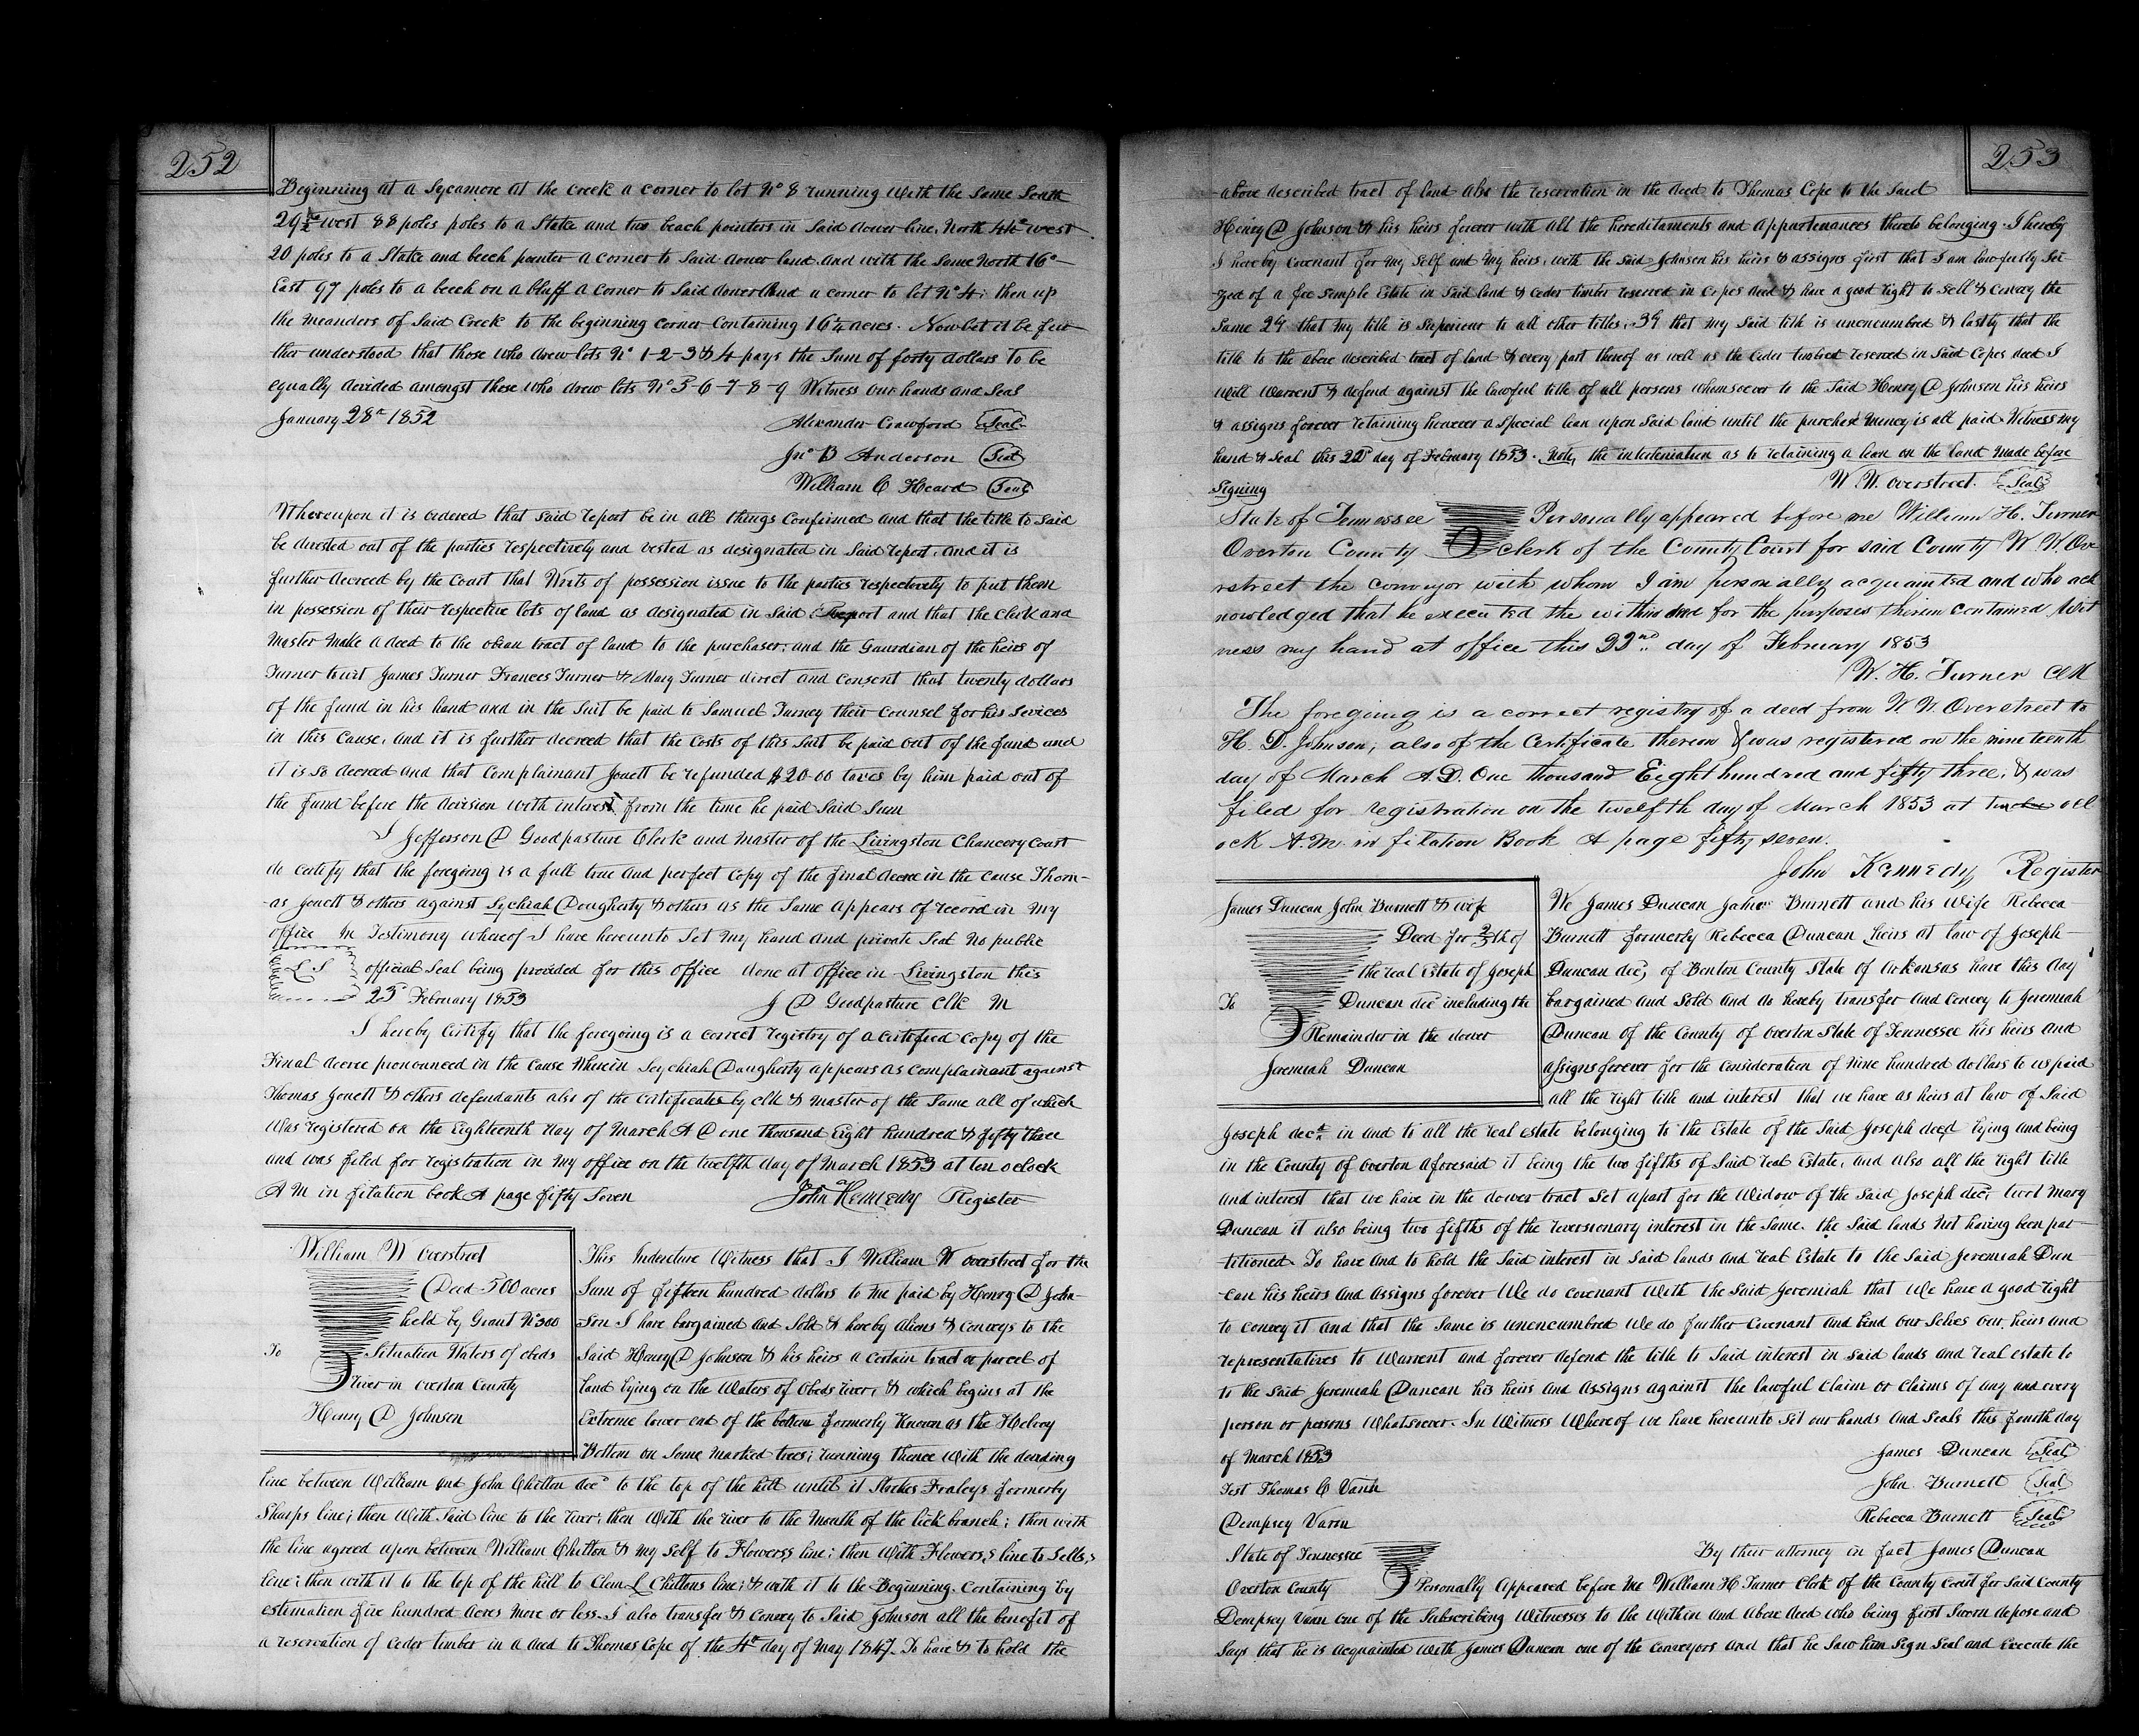 252
Beginning at a Sycamore at the creek a corner to lot No 8 running with the same South
29½ west 88 poles poles to a Stake and two beach pointers in Said dower line, North 44° west
20 poles to a Stake and beech pointer a corner to Said dower land and with the same North 16°
East 97 poles to a beech on a bluff a corner to Said dower land a corner to lot No 4; then up
the meanders of Said Creek to the beginning corner Containing 16¼ acres. Now let it be fur
ther understood that those who drew lots No 1-2-3 & 4 pays the Sum of forty dollars to be
equally divided amongst those who drew lots No 5-6-7-8-9 Witness our hands and Seal
January 28th 1852
Alexander Crawford Seal
Jno B Anderson Seal
William C Heard Seal
Whereupon it is ordered that Said report be in all things Confirmed and that the title to Said
be divested out of the parties respectively and vested as designated in Said report, and it is
further decreed by the Court that Writs of possession issue to the parties respectively to put them
in possession of their respective lots of land as designated in Said Report and that the Clerk and
Master make a deed to the obean tract of land to the purchaser, and the Gaurdian of the heirs of
Turner towit James Turner Frances Turner & Mary Turner direct and Consent that twenty dollars
of the fund in his hand and in the Suit be paid to Samuel Turney their counsel for his Sevices
in this Cause, and it is further decreed that the Costs of this Suit be paid out of the fund and
it is so decreed and that Complainant Jouett be refunded $20-00 taxes by him paid out of
the fund before the division with interest from the time he paid Said Sum
I Jefferson D Goodpasture Clerk and Master of the Livingston Chancery Court
do certify that the foregoing is a full true and perfect Copy of the final decree in the cause Thom-
-as Jouett & others against Sychiah Daugherty & others as the Same appears of record in my
office In Testimony whereof I have hereunto Set my hand and private Seal no public
L S official Seal being provided for this office done at office in Livingston this
25th February 1853 J D Goodpasture Clk M
I hereby Certify that the foregoing is a correct registry of a certified copy of the
Final decree pronounced in the Cause Wherein Sychiah Daugherty appears as Complainant against
Thomas Jouett & others defendants also of the certificates by clk & Master of the Same all of which
Was registered on the Eighteenth day of March A D one thousand Eight hundred & fifty three
and was filed for registration in my office on the twelfth day of March 1853 at ten oclock
A M in filation book A page fifty Seven John Kennedy Register
William W Overstreet
Deed 500 acres
held by Grant No 300
To Situation Waters of obeds
river in overton County
Henry D Johnson
This Indenture Witness that I William W overstreet for the
Sum of fifteen hundred dollars to me paid by Henry D John-
Son I have bargained and Sold & hereby aliens & Conveys to the
Said Henry D Johnson & his heirs a certain tract or parcel of
land lying on the Waters of Obeds river, & which begins at the
Extreme lower end of the bottom formerly Known as the Helvey
Bottom on Some marked trees; running thence With the deviding
line between William and John Chilton decd to the top of the hill until it Strikes Fraleys formerly
Sharps line; then With Said line to the river; then With the river to the Mouth of the lick branch; then with
the line agreed upon between William Chilton & my Self to Flowers's line; then with Flowers,s line to Sells,s
line; then with it to the top of the hill to Clem L Chiltons line; & with it to the Beginning. Containing by
estimation five hundred acres more or less. I also transfer & convey to Said Johnson all the benefit of
a reservation of Ceder timber in a deed to Thomas Cope of the 4th day of May 1847. To have & to hold the
253
above described tract of land also the reservation in the deed to Thomas Cope to the Said
Henry D Johnson & his heirs forever with all the hereditaments and appurtenances thereto belonging. I hereby
I hereby Covenant for my Self and my heirs, with the Said Johnson his heirs & assigns first that I am lawfully Sei
-zed of a fee Simple Estate in Said land & Ceder timber reserved in Copes deed & have a good right to Sell & Convey the
Same 2d that my title is Superiour to all other titles, 3d that my Said title is unencumbred & lastly that the
title to the above described tract of land & every part thereof as well as the Ceder timbred reserved in Said Copes deed I
Will Warrent & defend against the lawful title of all persons whomsoever to the Said Henry D Johnson his heirs
& assigns forever retaining however a Special lean upon Said land until the purchase money is all paid. Witness my
hand & Seal this 22d day of February 1853. Note, the interleniation as to retaining a lean on the land made before
Signing W. W. Overstreet. Seal
State of Tennessee Personally appeared before me William H. Turner
Overton County clerk of the County Court for said County W. W. Ove
rstreet the conveyor with whom I am personally acquainted and who ack
nowledged that he executed the within deed for the purposes therein contained Wit
ness my hand at office this 22nd day of February 1853
W. H. Turner Clk
The foregoing is a correct registry of a deed from W. W. Overstreet to
H. D. Johnson, also of the Certificate thereon & was registered on the nineteenth
day of March A.D. One thousand Eight hundred and fifty three; & was
filed for registration on the twelfth day of March 1853 at twelve ocl
ock A.M. in filation Book A page fifty seven.
John Kennedy Register
James Duncan John Burnett & wife
Deed for 2/5th of
the real Estate of Joseph
To Duncan decd including the
Remainder in the dower
Jeremiah Duncan
We James Duncan John Burnett and his Wife Rebecca
Burnett formerly Rebecca Duncan heirs at law of Joseph
Duncan dec, of Benton County State of Arkansas have this day
bargained and Sold and do hereby transfer and Convey to Jeremiah
Duncan of the County of Overton State of Tennessee his heirs and
assigns forever for the Consideration of Nine hundred dollars to us paid
all the right title and interest that we have as heirs at law of Said
Joseph decd in and to all the real estate belonging to the Estate of the Said Joseph decd lying and being
in the County of Overton aforesaid it being the two fifths of Said real Estate, and also all the right title
and interest that we have in the dower tract Set apart for the Widow of the Said Joseph decd, twot Mary
Duncan it also being two fifths of the reversionary interest in the Same. the Said lands not having been par
titioned. To have and to hold the Said interest in Said lands and real Estate to the Said Jeremiah Dun
-can his heirs and assigns forever We do covenant With the Said Jeremiah that We have a good right
to convey it and that the Same is unencumbred We do further Covenant and bind our Selves our heirs and
representatives to Warrent and forever defend the title to Said interest in Said lands and real estate to
to the Said Jeremiah Duncan his heirs and assigns against the lawful Claim or Claims of any and every
person or persons Whatsoever. In Witness Whereof we have hereunto Set our hands and Seals this fourth day
of March 1853 James Duncan Seal
Test Thomas C John Burnett Seal
Dempsey Vann Rebecca Burnett Seal
State of Tennessee By their attorney in fact James Duncan
Overton County Personally Appeared before me William H Turner Clerk of the County Court for Said County
Dempsey Vann one of the Subscribing Witnesses to the Within and above deed who being first Sworn depose and
Says that he is acquainted With James Duncan one of the Conveyors and that he Saw him Sign Seal and Execute the